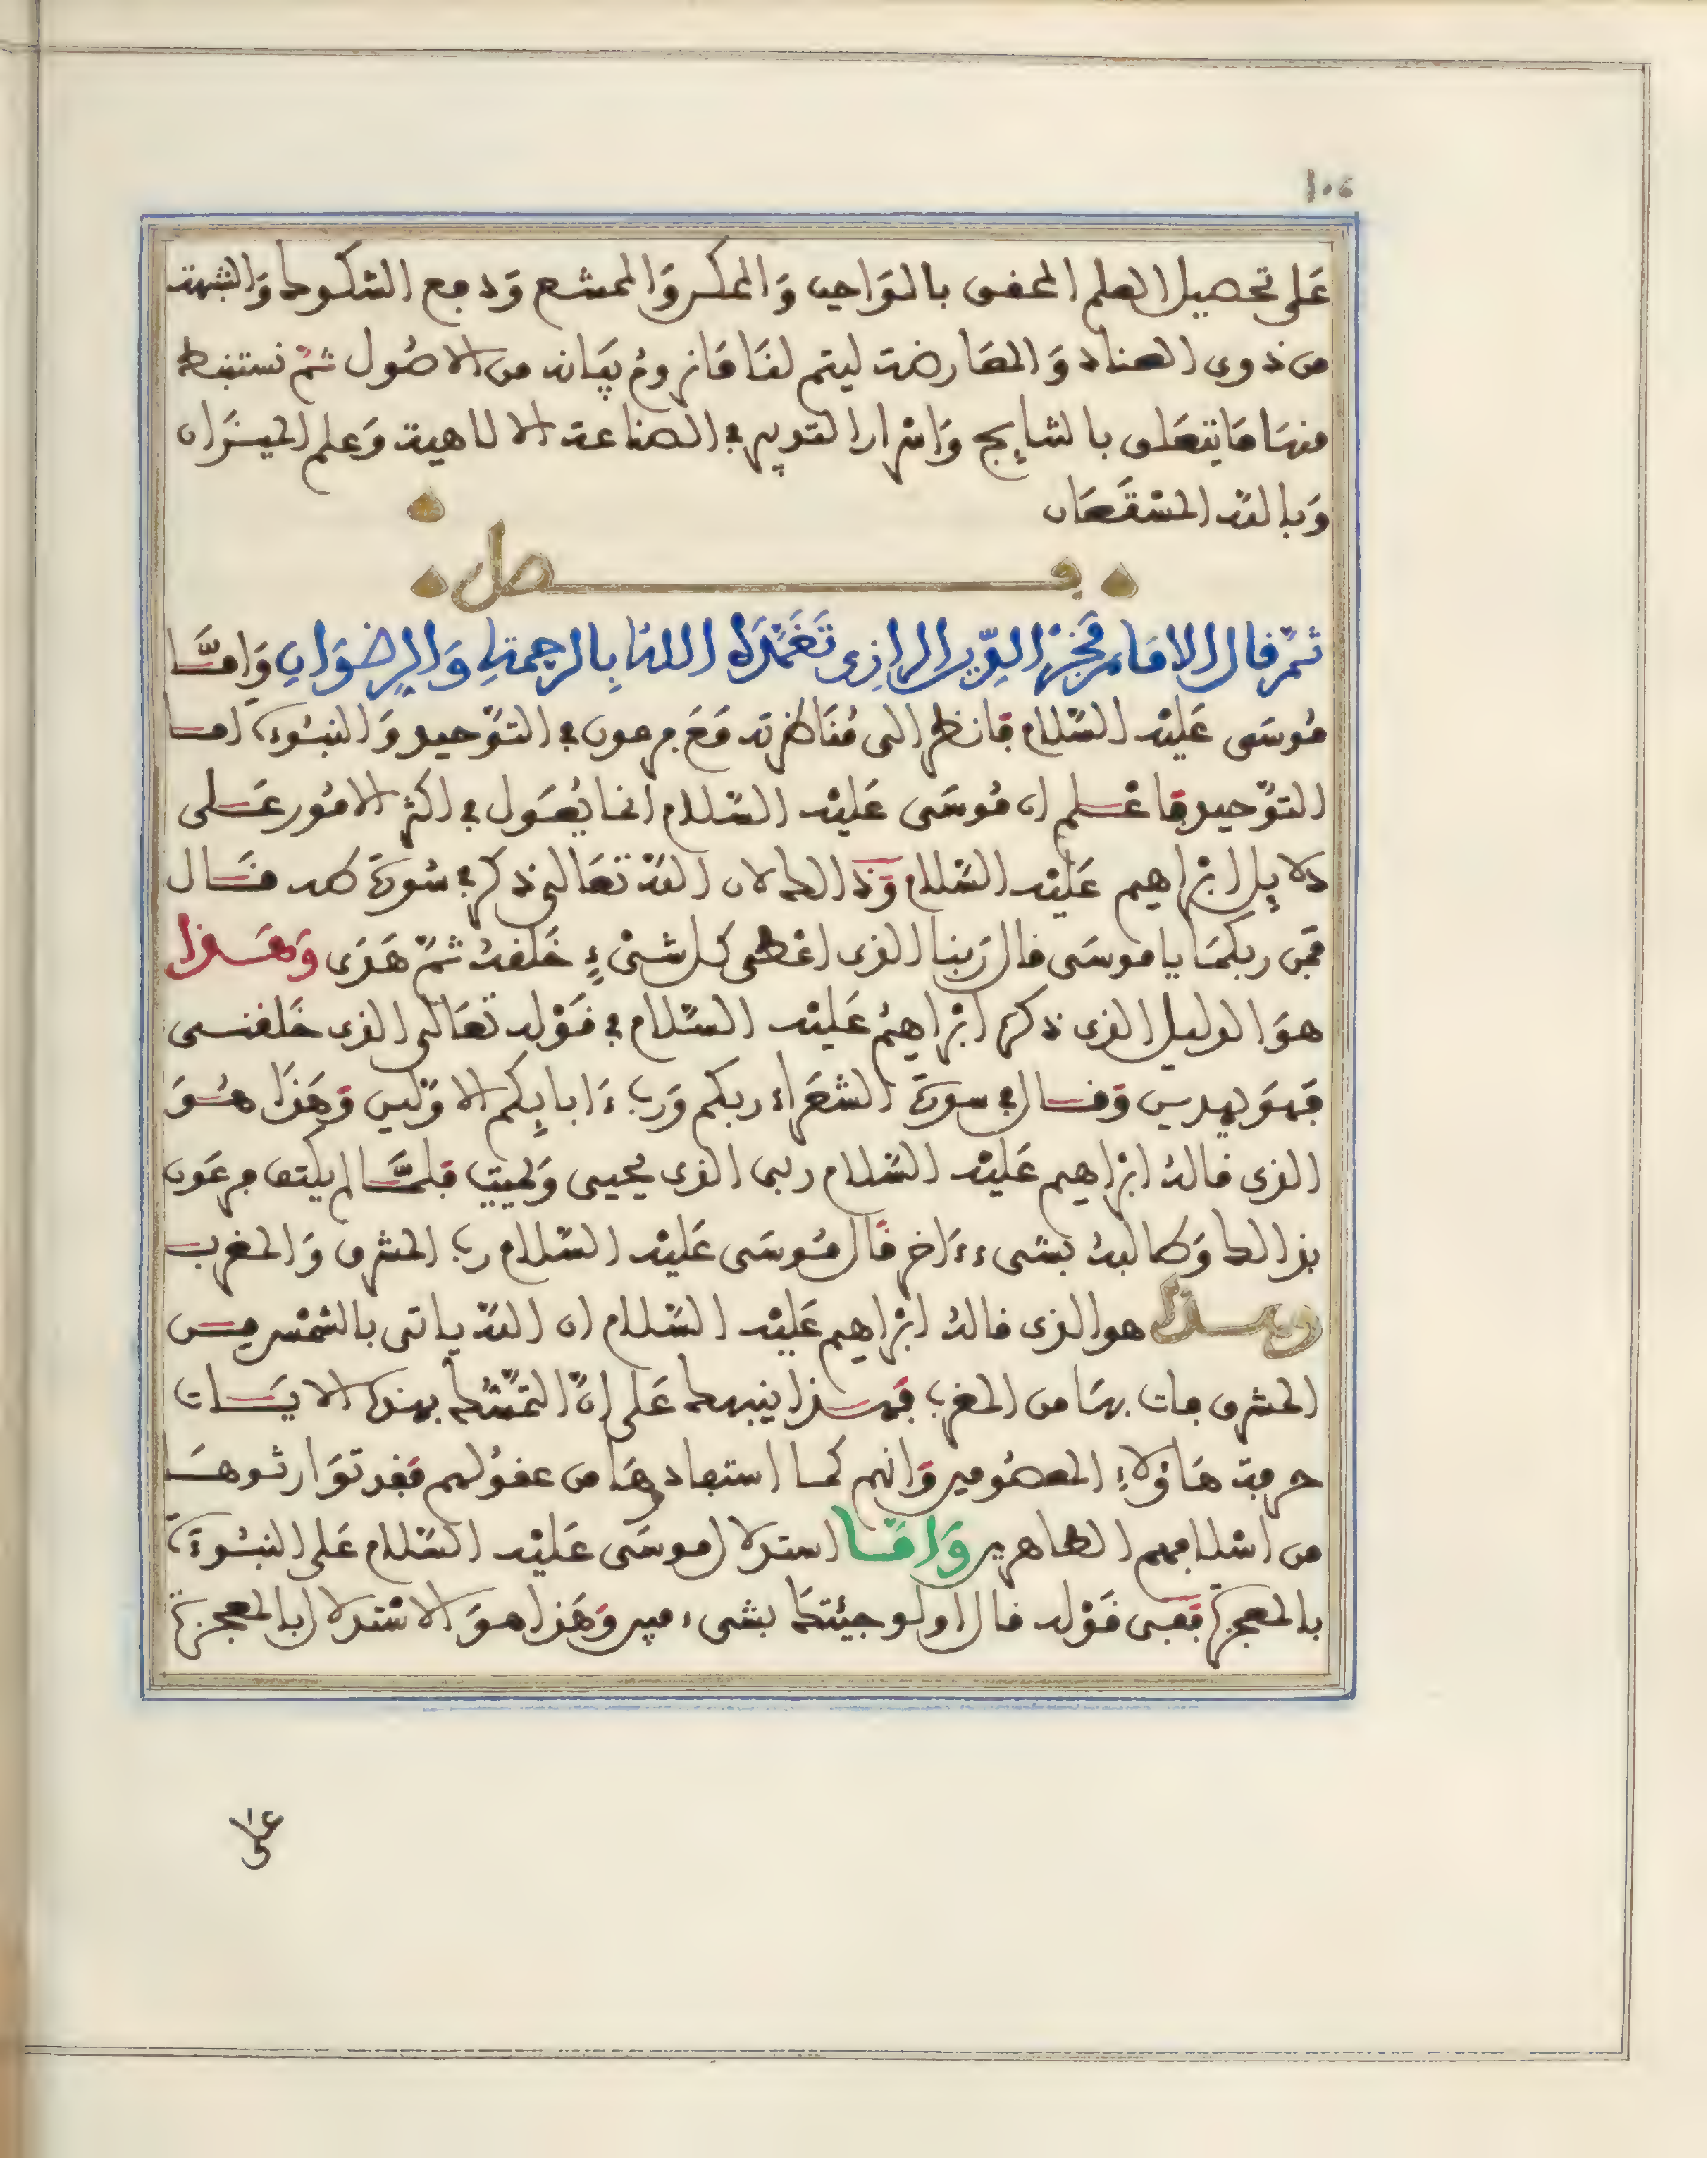 ١٠٤
عَلى تحصيل العلم المحقق بالوَاجب وَالممكن وَالممتنع وَدفع الشكوك وَالشبهة
من ذوى العناد وَالمعَارضة ليتم لنَا مَا نرومُ بيَانه من الاصُول ثمّ نستنبط
منهَا مَا يتعَلق بالنتايج وَاسْرار التوليد في الصناعة الالاهية وَعلم الميزَان
وَبالله المسْتَعَان
فصل
ثمّ قال الامَام فَخرْ الدِّين الرازِى تَغَمَّدَهُ اللهُ بِالرحمةِ وَالرِضوَانِ وَامَّا
مُوسَى عَليْه السّلام فانظر الى مُنَاظرته مَعَ فرعون في التوّحيد وَالنبُوءة امّا
التوّحيد فاعْلم ان مُوسَى عَليْه السّلام انما يُعَول في اكثر الامُور عَلى
دلايِل ابْرَاهيم عَليْه السّلام وَذالك لان اللهّ تعَالى ذكر في سُورَة طه قال
فمَن ربكمَا يا موسَى قال رَبنا الذى اعْطى كل شىْءٍ خَلقهُ ثمّ هَدَى وَهَذا
هوَ الدليل الذى ذكره ابْرَاهيمُ عَليْه السّلام في قَوْله تعَالى الذى خَلقنى
فهوَ يهدين وَقال في سورَة الشعَراء ربكم وَرب ءَابايِكم الاوَلين وَهَذَا هُوَ
الذى قالهُ ابْرَاهيم عَليْه السّلام ربى الذى يُحيى وَيميت فلمَّا لم يكتف فرعَون
بذالك وَطالبهُ بشىء ءَاخر قَال مُوسَى عَليْه السّلام رب المشرق وَالمغرب
وهذا هو الذى قالهُ ابْرَاهيم عَليْه السّلام ان اللهّ ياتى بالشمْس من
المشرق فات بهَا من المغرب فهَذا ينبهك عَلى انّ التمَسّك بهذه الايات
حرفة هَاؤلاءِ المعصُومين وَانهم كما استفادوهَا من عقوُلهم فقد توَارثوهَا
من اسْلافهم الطاهرين وَامَّا استدلال موسَى عَليْه السّلام عَلى النبُوءَة
بالمعجزة ففى قَوْله قال اولو جئتكَ بشىء مبين وَهَذا هوَ الاسْتدلال بالمعجزة
على